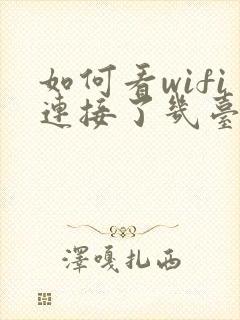 如何看wifi
連接了幾臺
澤嘎扎西